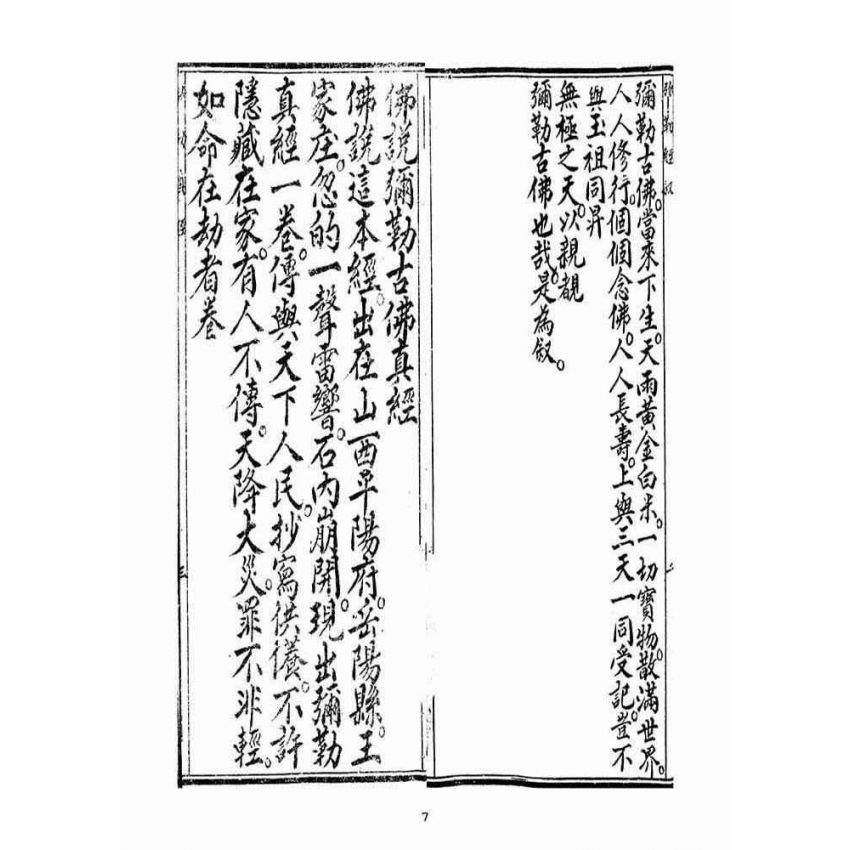 彌勒古佛。當來下生。天雨黃金白米。一切寶物。散滿世界。
人人修行。個個念佛。人人長壽。上與三天一同受記。豈不
與玉祖同昇
無極之天。以親覩
彌勒古佛也哉。是為敘。
二
佛說彌勒古佛真經
佛說這本經。出在山西平陽府。岳陽縣。王
家庄。忽的一聲雷響。石內崩開。現出彌勒
真經一卷。傳與天下人民。抄寫供養。不許
隱藏在家。有人不傳。天降大災。罪不非輕。
如命在劫者卷
三
7